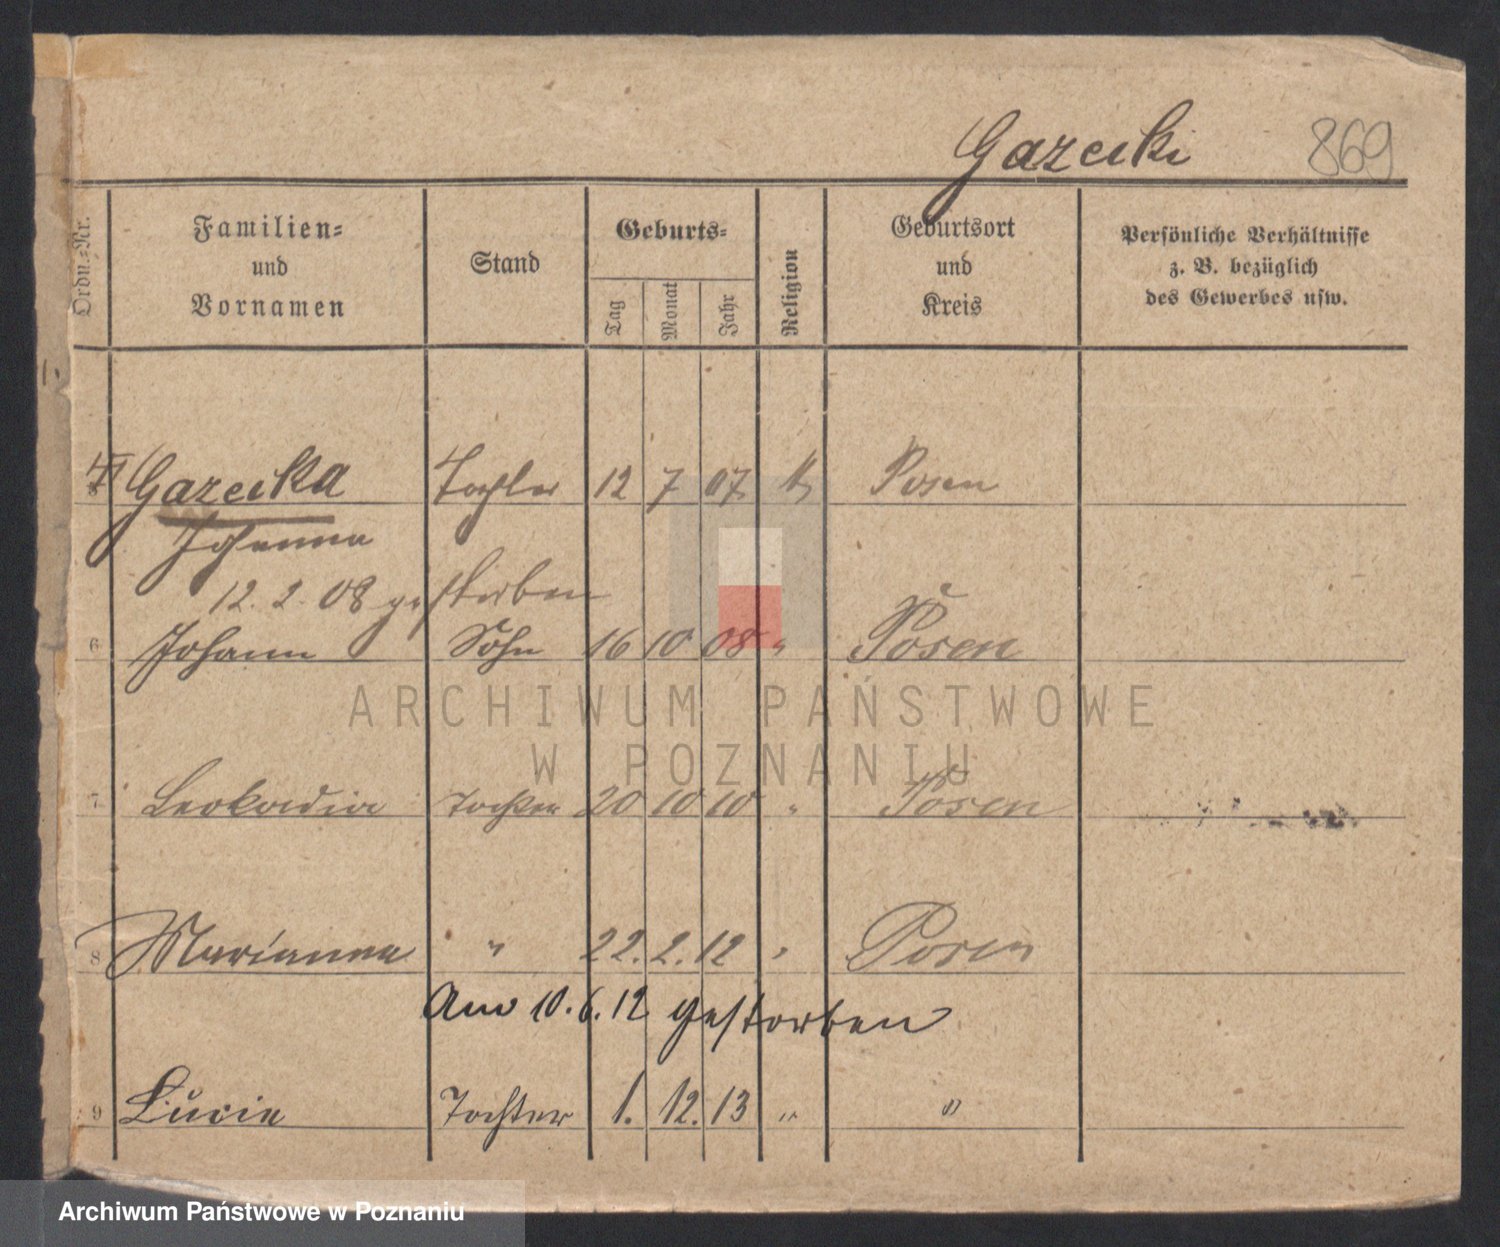 Gazecki 869
Ordn.=Nr.
Familien=
und
Vornamen
Stand
Geburts=
Tag
Monat
Jahr
Religion
Geburtsort
und
Kreis
Persönliche Verhältnisse
z. B. bezüglich
des Gewerbes usw.
Gazecka Tochter 12 7 07 k Posen
Johanna
12. 2. 08 gestorben
6 Johann Sohn 16 10 08 " Posen
ARCHIWUM PAŃSTWOWE
W POZNANIU
7 Leokadia Tochter 20 10 10 " Posen
8 Marianna " 22. 2. 12 " Posen
Am 10. 6. 12 gestorben
9 Lucie Tochter 1. 12. 13 " "
Archiwum Państwowe w Poznaniu